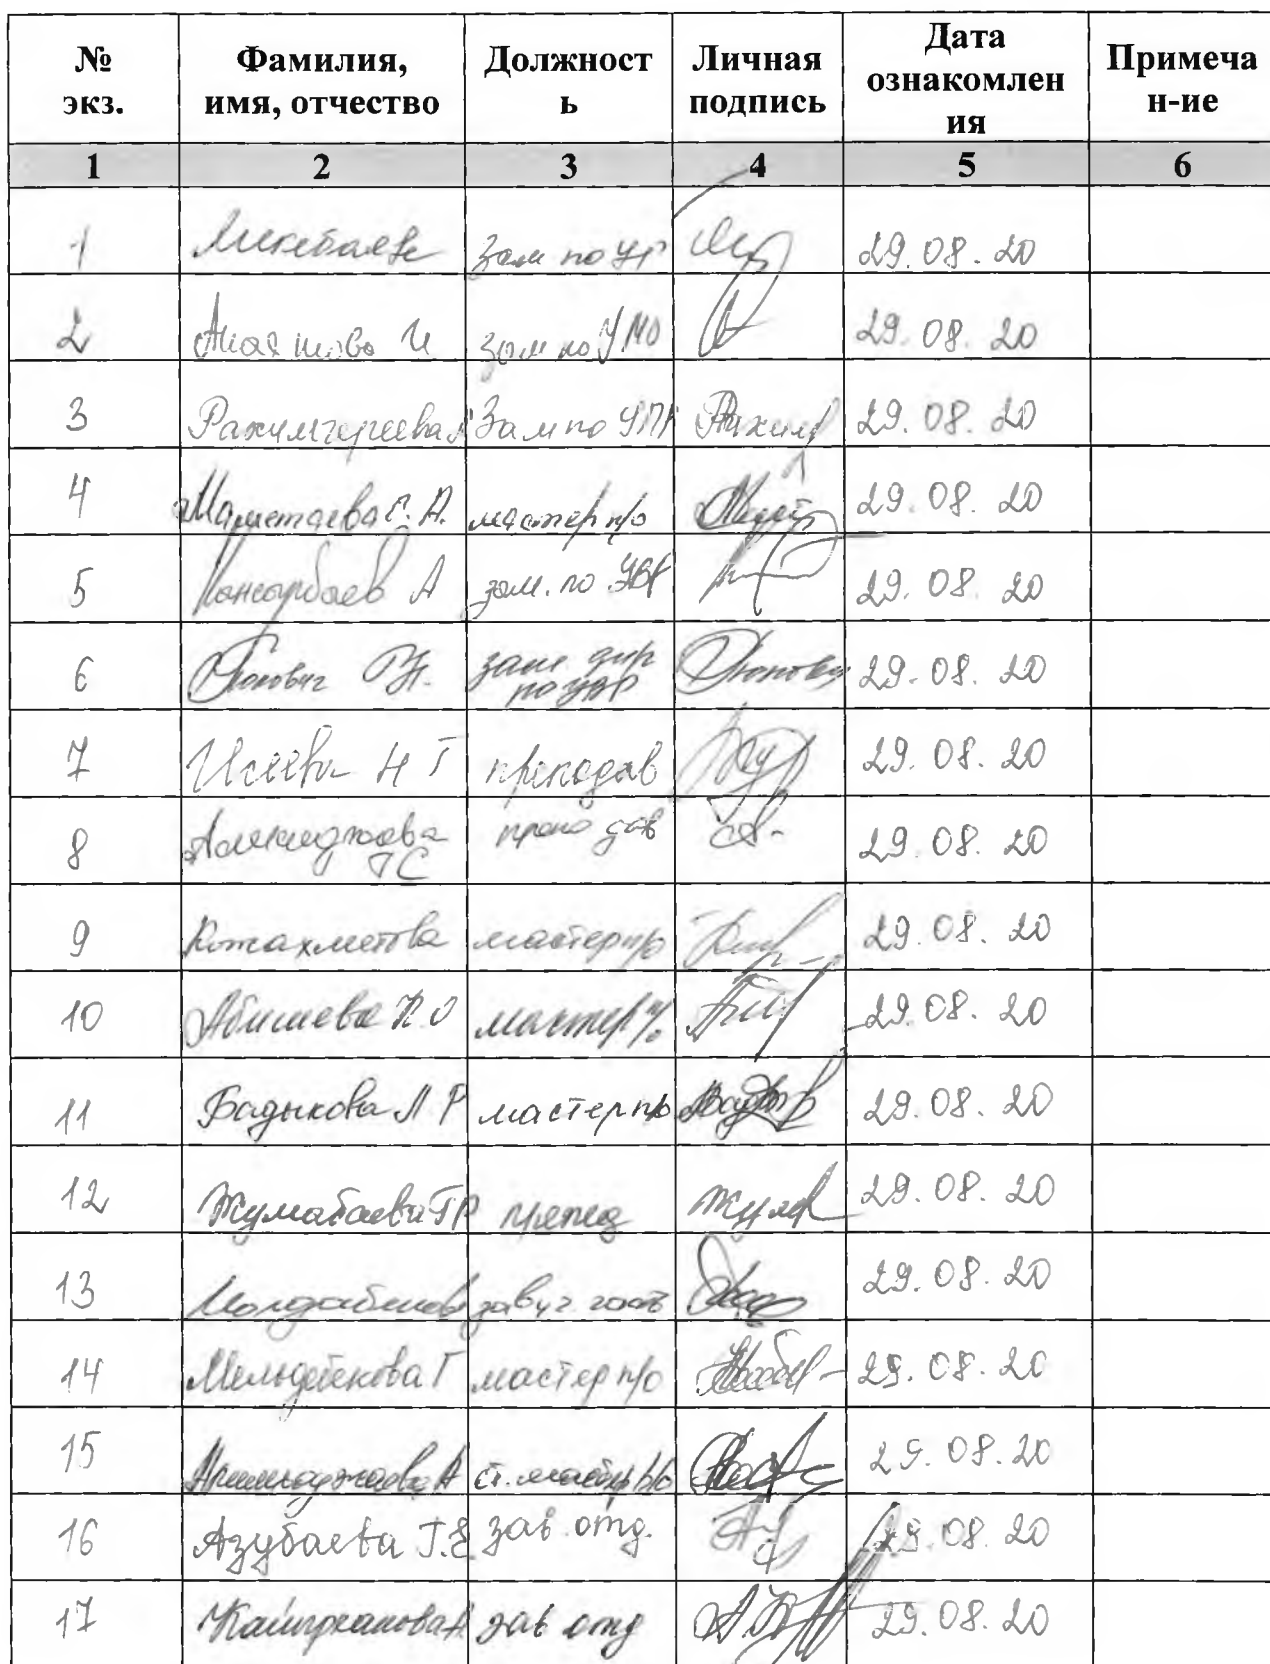 № экз.
Фамилия, имя, отчество
Должност ь
Личная подпись
Дата ознакомлен ия
Примеча н-ие
1 2 3 4 5 6
1 зам по УР 29.08.20
2 зам по УМО 29.08.20
3 Рахимгереева Зам по УПР Рахим 29.08.20
4 Маметаева Г. А. мастер п/о 29.08.20
5 А зам. по УВР 29.08.20
6 зам дир по 29.08.20
7 Исеева Н Г преподав 29.08.20
8 ГС препо дав 29.08.20
9 Кожахметова мастер п/о 29.08.20
10 Абишева К.О мастер п/о 29.08.20
11 Бадыкова Л Р мастер п/о 29.08.20
12 Жумабаева ГР препод 29.08.20
13 зав уч. 29.08.20
14 Мельдебекова Г мастер п/о 29.08.20
15 А ст. мастер п/о 29.08.20
16 Азубаева Г.Е зав отд. 29.08.20
17 Кайыржанова А зав отд 29.08.20